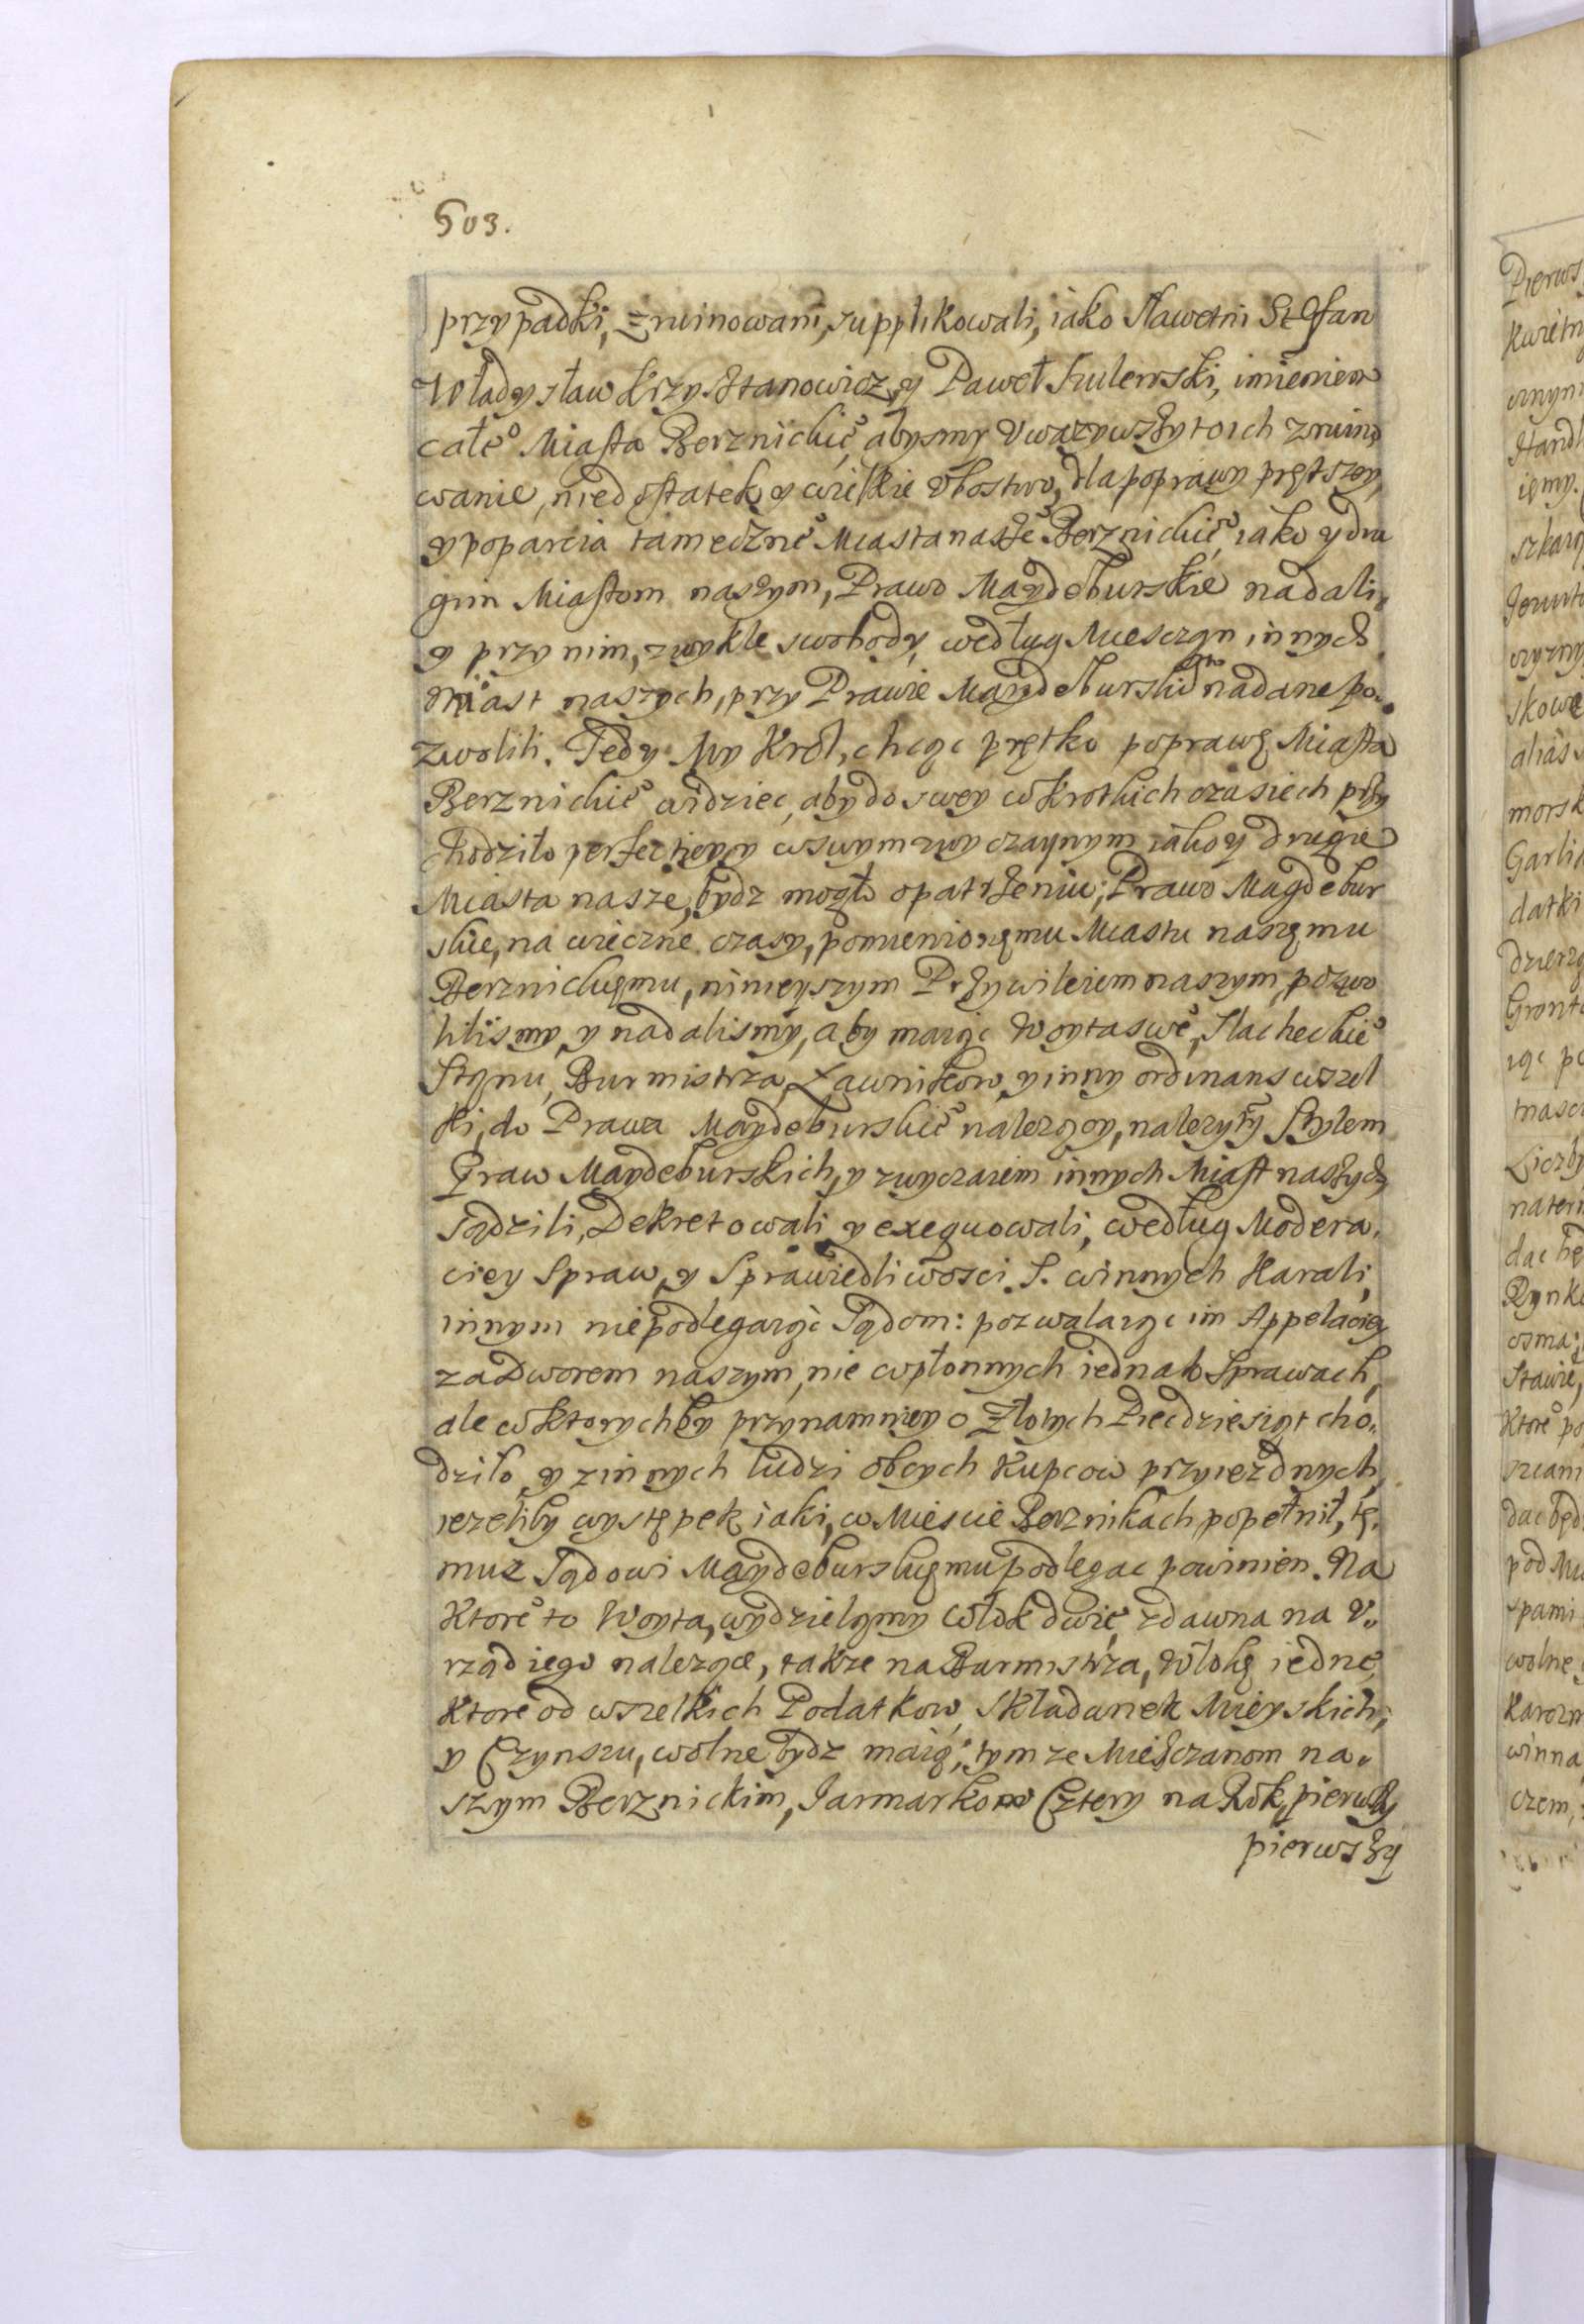 503.
przypadki, zruinowani, supplikowali, iako Sławetni Stefan
Władysław Krzysztanowicz, y Paweł Kulewski, imieniem
całe° Miasta Berznickie°, abysmy Uwazywszy to ich zruino
wanie, niedostatek, y wielkie Vbostwo, dla poprawy prętszey,
y poparcia tameczne° Miasta nasze° Berznickie°, iako y dru
gim Miastom naszym, Prawo Maydeburskie nadali,
y przy nim, zwykle swobody, według Miesczan innych
Miast naszych, przy Prawie Maydeburskim nadane po-
zwolili. Tedy My Krol, chcąc prętko poprawę Miasta
Berznickie° widziec, aby do swey w krotkich czasiech przy
chodziło perfectiey, y w swym zwyczaynym iako y drugie
Miasta nasze, bydz mogło opatrzeniu; Prawo Magdebur
skie, na wieczne czasy, pomienionęmu Miastu naszęmu
Berznickięmu, ninieyszym Przywileiem naszym, pozwo
lilismy, y nadalismy, aby maiąc Woyta swe°, Slacheckie°
Stanu, Burmistrza, Ławnikow, y inny ordinans wszel
ki, do Prawa Maydeburskie° nalezący, nalezytÿ Stylem
Praw Maydeburskich, y zwyczaiem innych Miast naszych,
sądzili, Dekretowali y exequowali, według Modera-
ciey Spraw, y Sprawiedliwosci S. winnych Karali,
innym niepodlegaiąc Sądom: pozwalaiąc im Appelaciey
za Dworem naszym, nie w płonnych iednak Sprawach,
ale w ktorychby przynamniey o Złotych Piecdziesiąt cho-
dziło, y z innych ludzi obcych Kupcow przyiezdnych,
iezeliby występek iaki, w Miescie Berznikach popełnił, tę-
muz Sądowi Maydeburskięmu podlegac powinien. Na
Ktore° to Woyta, wydzielamy Włok dwie, zdawna na V-
rząd iego nalezące, takze na Burmistrza, Włokę iednę,
Ktore od wszelkich Podatkow, Składanek Mieyskich,
y Czynszu, wolne bydz maią; tymze Mieszczanom na-
szym Berznickim, Iarmarkow Cztery na Rok, pierwszy
pierwszy